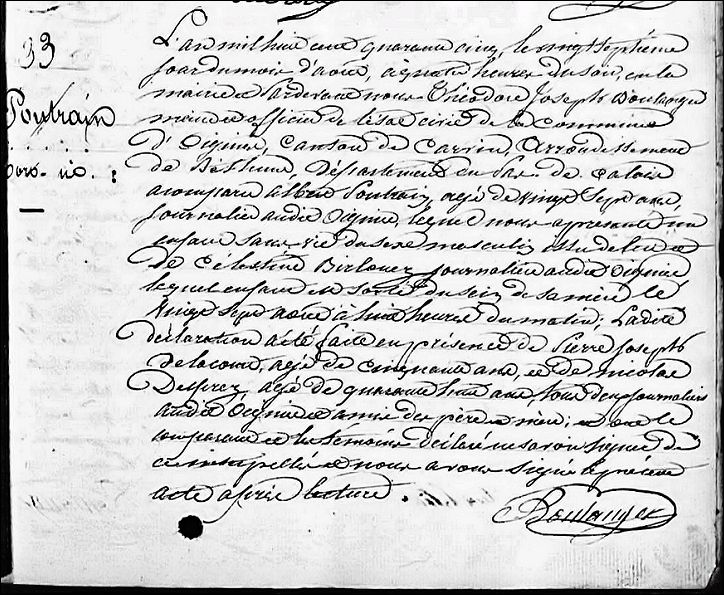 33
Poutrain
mort-né :
L'an mil huit cent quarante cinq, le vingt septième
jour du mois d'août, à quatre heures du soir, en la
mairie et Pardevant nous Théodore Joseph Boulanger
maire et officier de l'état civil de la Commune
d'Oignies, Canton de Carvin, Arrondissement
de Béthune, Département du Pas-de-Calais
a comparu Albert Poutrain, agé de vingt sept ans,
Journalier audit Oignies, lequel nous a présenté un
enfant sans vie du sexe masculin issu de lui et
de Célestine journalière audit Oignies
lequel enfant est sorti du sein de sa mère le
vingt sept août à huit heures du matin; Ladite
déclaration a été faite en présence de Pierre Joseph
Delacourt, agé de cinquante ans, et de Nicolas
Desprez agé de quarante huit ans, tous deux journaliers
audit Oignies et amis des père et mère; et ont le
comparant et les témoins déclaré ne savoir signer de
ce interpellés et nous avons signé le présent
acte après lecture
Boulanger